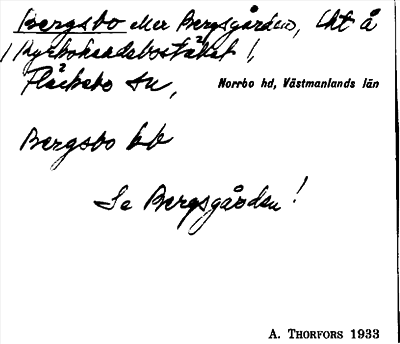 Bergsbo eller Bergsgården, lht å
/ Kyrkoherdsbostället /,
Fläckebo sn,
Norrbo hd, Västmanlands län
Bergsbo bb
Se Bergsgården!
A. THORFORS 1933